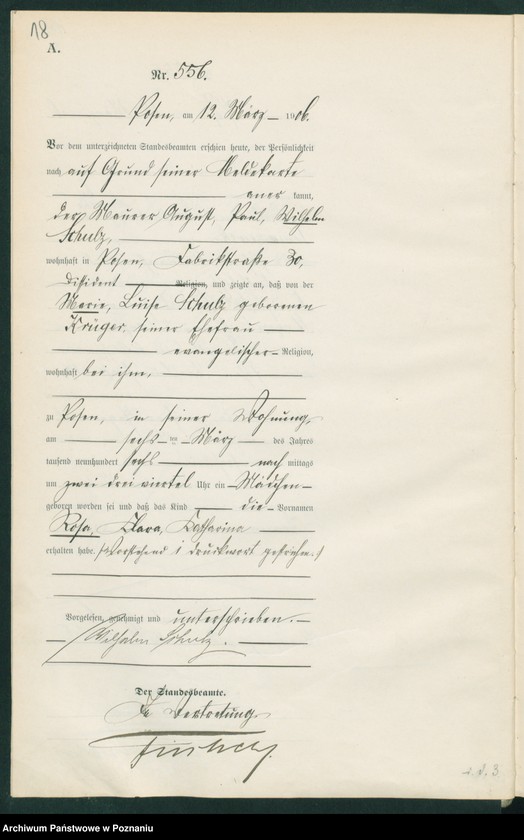 18
A.
Nr. 556.
Posen, am 12. März 1906.
Vor dem unterzeichneten Standesbeamten erschien heute, der Persönlichkeit
nach auf Grund seiner Meldekarte
aner kannt,
der Maurer August, Paul, Wilhelm
Schulz,
wohnhaft in Posen, Fabrikstraße 30,
Dissident Religion, und zeigte an, daß von der
Marie, Luise Schulz geborenen
Krüger seiner Ehefrau
evangelischer Religion,
wohnhaft bei ihm,
zu Posen, in seiner Wohnung,
am sechsten März des Jahres
tausend neunhundert sechs nach mittags
um zwei dreiviertel Uhr ein Mädchen
geboren worden sei und daß das Kind die Vornamen
Rosa, Klara, Katharina
erhalten habe. (Vorstehend 1 Druckwort gestrichen.)
Vorgelesen, genehmigt und unterschrieben.
Wilhelm Schulz.
Der Standesbeamte.
In Vertretung
Archiwum Państwowe w Poznaniu